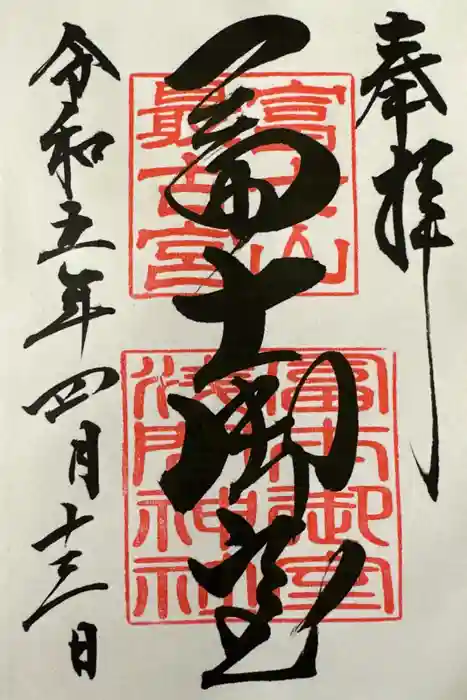 奉拝
富士山
最古宮
冨士御室
富士御室
浅間神社
令和五年四月十三日